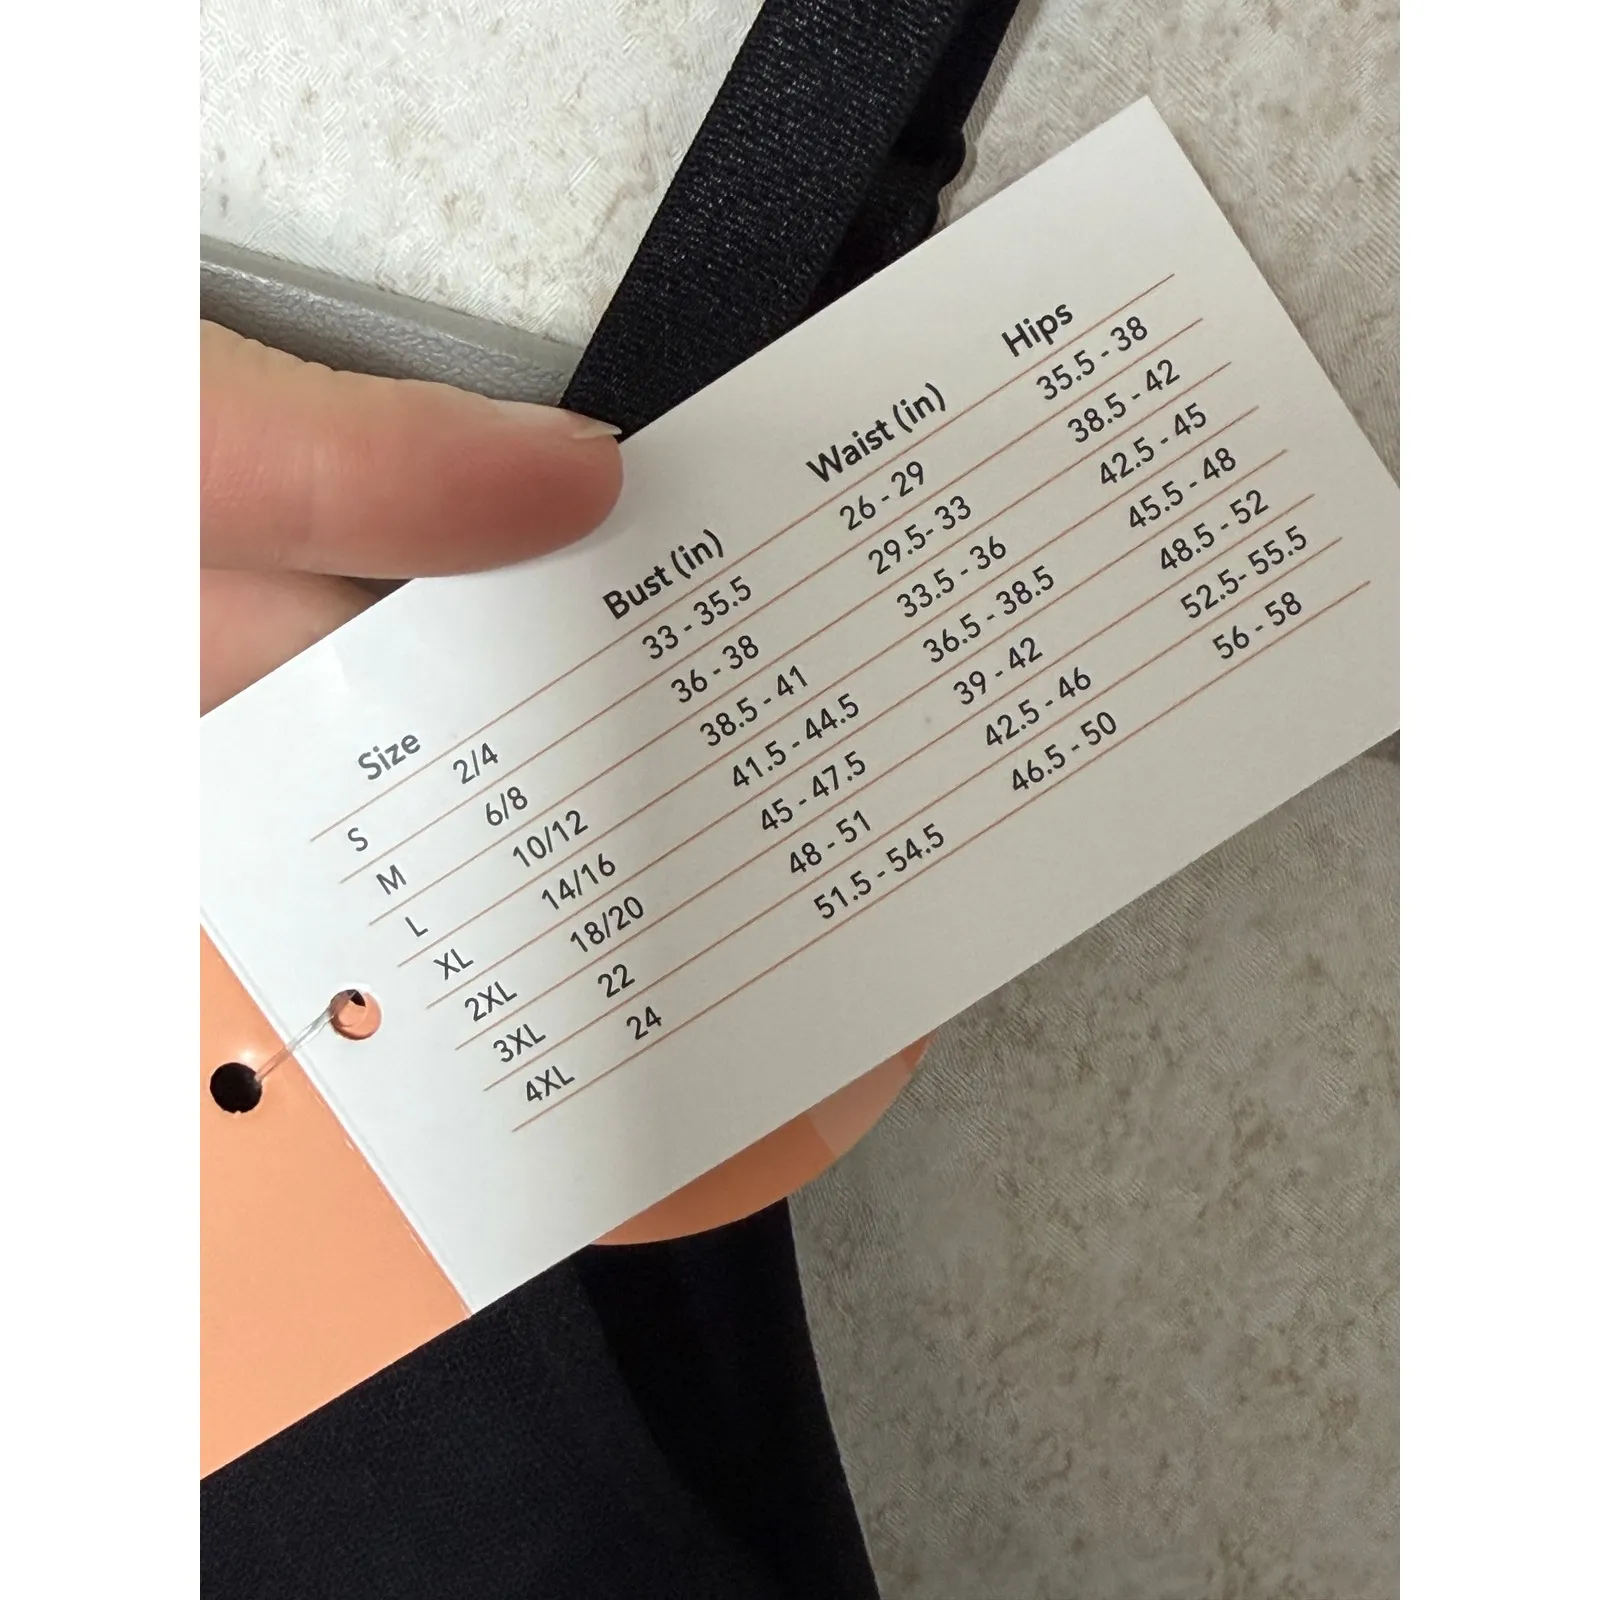 Size Bust (in) Waist (in) Hips
S 2/4 33 - 35.5 26 - 29 35.5 - 38
M 6/8 36 - 38 29.5- 33 38.5 - 42
L 10/12 38.5 - 41 33.5 - 36 42.5 - 45
XL 14/16 41.5 - 44.5 36.5 - 38.5 45.5 - 48
2XL 18/20 45 - 47.5 39 - 42 48.5 - 52
3XL 22 48 - 51 42.5 - 46 52.5- 55.5
4XL 24 51.5 - 54.5 46.5 - 50 56 - 58